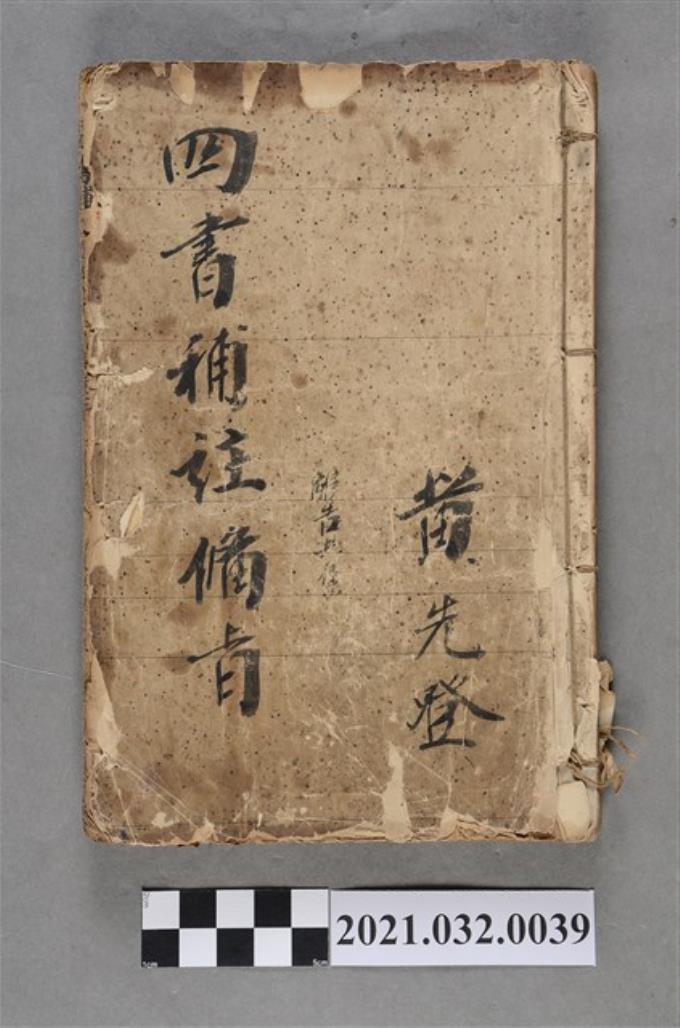 黄先登
四書補註備旨
2021.032.0039